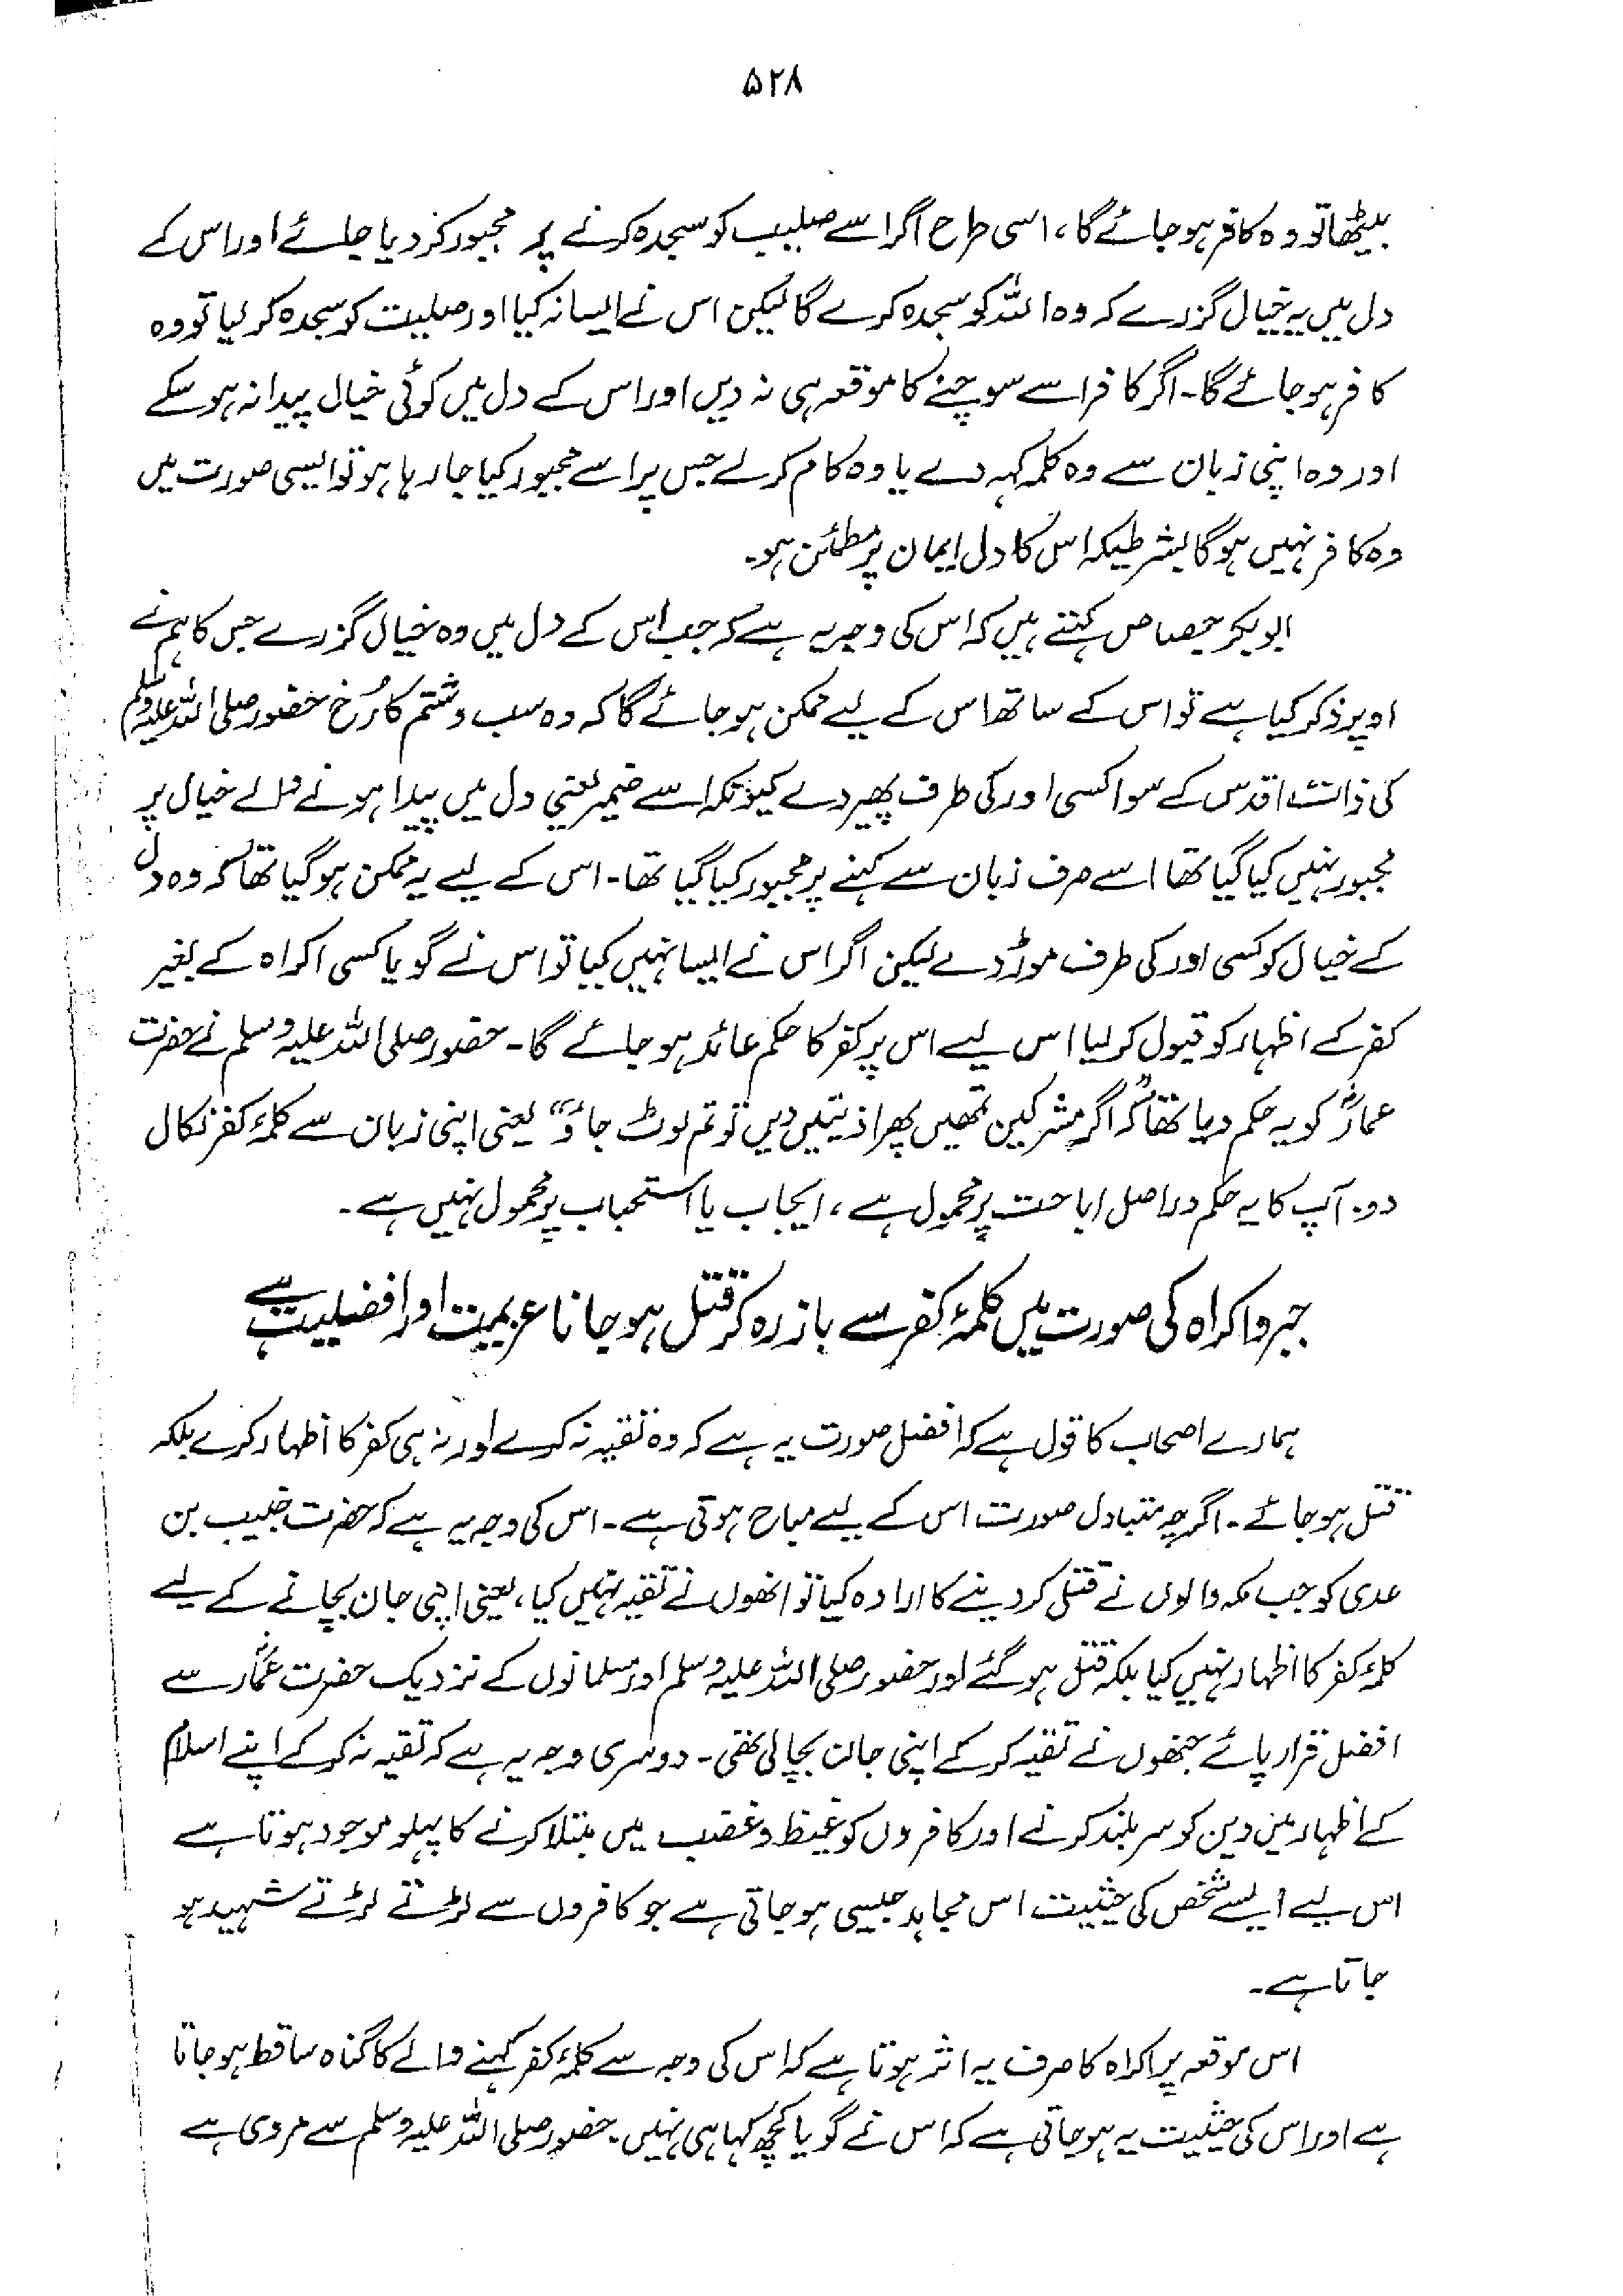 ۵۲۸
بیٹھا تو وہ کافر ہو جائے گا، اسی طرح اگر اسے صلیب کو سجدہ کرنے پر مجبور کر دیا جائے اور اس کے
دل میں یہ خیال گزرے کہ وہ اللہ کو سجدہ کرے گا لیکن اس نے ایسا نہ کیا اور صلیب کو سجدہ کر لیا تو وہ
کافر ہو جائے گا۔ اگر کافر اسے سوچنے کا موقعہ ہی نہ دیں اور اس کے دل میں کوئی خیال پیدا نہ ہو سکے
اور وہ اپنی زبان سے وہ کلمہ کہہ دے یا وہ کام کر لے جس پر اسے مجبور کیا جا رہا ہو تو ایسی صورت میں
وہ کافر نہیں ہوگا بشرطیکہ اس کا دل ایمان پر مطمئن ہو۔
ابوبکر جصاص کہتے ہیں کہ اس کی وجہ یہ ہے کہ جب اس کے دل میں وہ خیال گزرے جس کا ہم نے
اوپر ذکر کیا ہے تو اس کے ساتھ اس کے لیے ممکن ہو جائے گا کہ وہ سب و شتم کا رُخ حضور صلی اللہ علیہ وسلم
کی ذات اقدس کے سوا کسی اور کی طرف پھیر دے کیونکہ اسے ضمیر یعنی دل میں پیدا ہونے والے خیال پر
مجبور نہیں کیا گیا تھا اسے صرف زبان سے کہنے پر مجبور کیا گیا تھا۔ اس کے لیے یہ ممکن ہو گیا تھا کہ وہ دل
کے خیال کو کسی اور کی طرف موڑ دے لیکن اگر اس نے ایسا نہیں کیا تو اس نے گویا کسی اکراہ کے بغیر
کفر کے اظہار کو قبول کر لیا اس لیے اس پر کفر کا حکم عائد ہو جائے گا۔ حضور صلی اللہ علیہ وسلم نے حضرت
عمارؓ کو یہ حکم دیا تھا کہ "اگر مشرکین تمھیں پھر اذیتیں دیں تو تم لوٹ جاؤ" یعنی اپنی زبان سے کلمۂ کفر نکال
دو۔ آپ کا یہ حکم دراصل اباحت پر محمول ہے، ایجاب یا استحباب پر محمول نہیں ہے۔
جبر و اکراہ کی صورت میں کلمۂ کفر سے باز رہ کر قتل ہو جانا عزیمت اور افضلیت ہے
ہمارے اصحاب کا قول ہے کہ افضل صورت یہ ہے کہ وہ تقیہ نہ کرے اور نہ ہی کفر کا اظہار کرے بلکہ
قتل ہو جائے۔ اگرچہ متبادل صورت اس کے لیے مباح ہوتی ہے۔ اس کی وجہ یہ ہے کہ حضرت خبیب بن
عدی کو جب مکہ والوں نے قتل کر دینے کا ارادہ کیا تو انھوں نے تقیہ نہیں کیا، یعنی اپنی جان بچانے کے لیے
کلمۂ کفر کا اظہار نہیں کیا بلکہ قتل ہو گئے اور حضور صلی اللہ علیہ وسلم اور مسلمانوں کے نزدیک حضرت عمارؓ سے
افضل قرار پائے جنھوں نے تقیہ کر کے اپنی جان بچا لی تھی۔ دوسری وجہ یہ ہے کہ تقیہ نہ کر کے اپنے اسلام
کے اظہار میں دین کو سربلند کرنے اور کافروں کو غیظ و غضب میں مبتلا کرنے کا پہلو موجود ہوتا ہے
اس لیے ایسے شخص کی حیثیت اس مجاہد جیسی ہو جاتی ہے جو کافروں سے لڑتے لڑتے شہید ہو
جاتا ہے۔
اس موقعہ پر اکراہ کا صرف یہ اثر ہوتا ہے کہ اس کی وجہ سے کلمۂ کفر کہنے والے کا گناہ ساقط ہو جاتا
ہے اور اس کی حیثیت یہ ہو جاتی ہے کہ اس نے گویا کچھ کہا ہی نہیں۔ حضور صلی اللہ علیہ وسلم سے مروی ہے